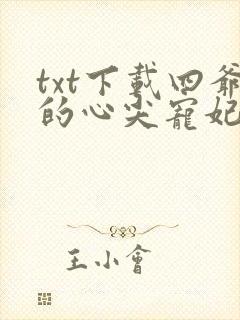 txt下載四爺
的心尖寵妃
王小會